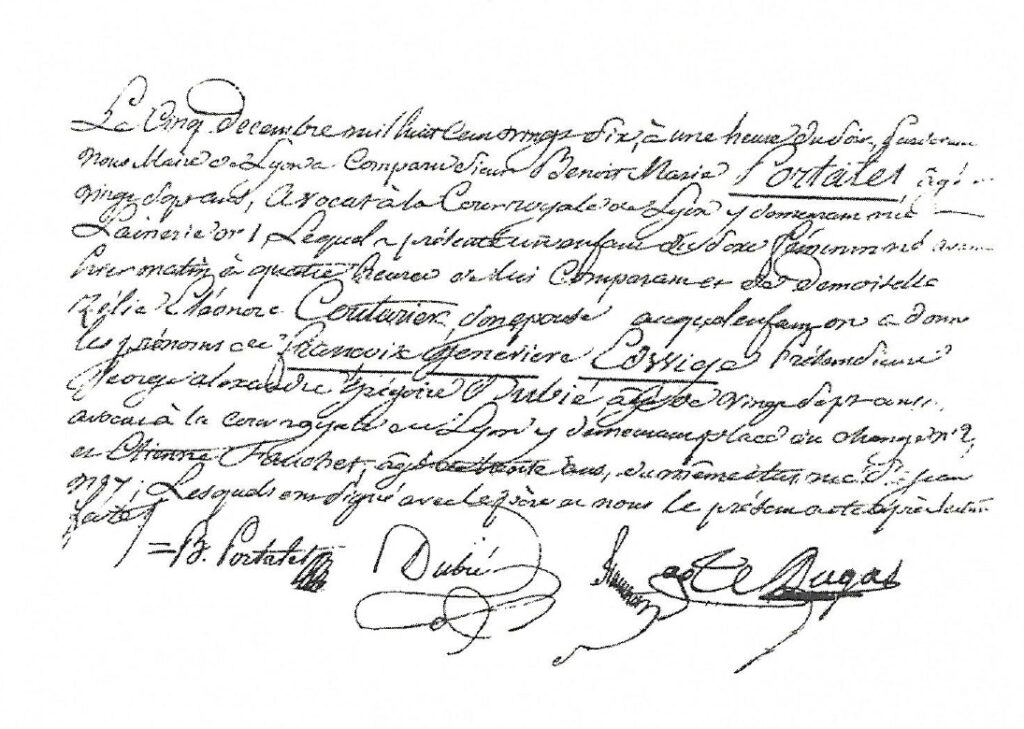 Le Cinq Decembre mil huit Cent vingt Six, à une heure du Soir, Pardevant
nous Maire de Lyon a Comparu Sieur Benoit Marie Portalet âgé
vingt Sept ans, Avocat à la Cour royale de Lyon y demeurant rue
Lainerie n° 1, Lequel a présenté un enfant du Sexe féminin né avant
hier matin à quatre heures de lui Comparant et de Demoiselle
Zélie Eléonore Couturier, Son epouse auquel enfant on a donné
les prénoms de Françoise Geneviève Présens Sieurs
George alexandre Grégoire Dubié, âgé de vingt Sept ans
avocat à la cour royale de Lyon y demeurant place du change n° 2,
et Etienne Fauchet, âgé de trente ans, du même état, rue St. jean
n° 7; Lesquels ont Signé avec le père et nous le présent acte après lecture
faite
= B. Portalet Dubié Dugas